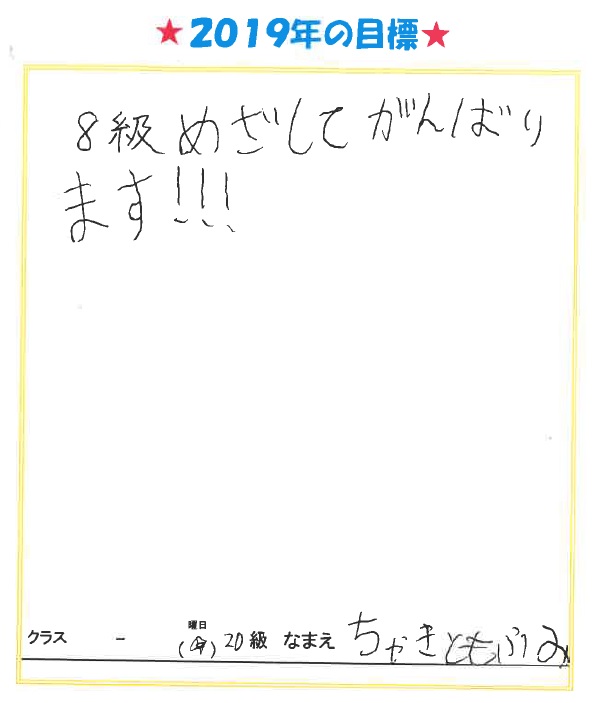 ★2019年の目標★
8級めざしてがんばり
ます!!!
曜日
クラス - (金) 20級 なまえ ちゃきともふみ